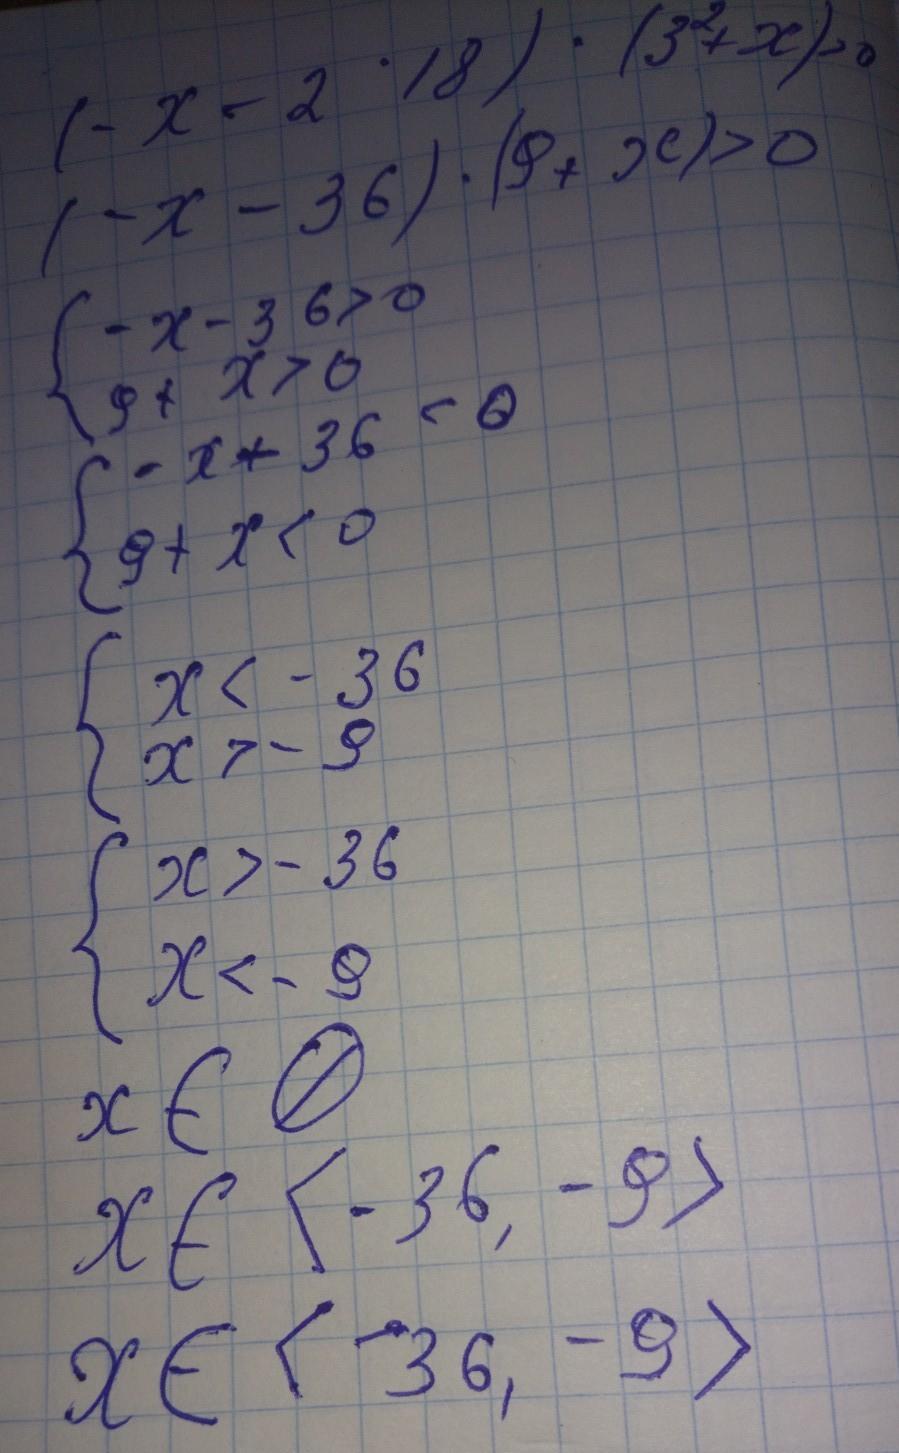 (-x - 2 · 18) · (3²+x)>0
(-x - 36) · (9+ x)>0
{ -x - 36>0
9+ x>0
{ -x - 36 < 0
9+ x< 0
{ x< - 36
x > - 9
{ x > - 36
x < - 9
x ∈ ∅
x ∈ < - 36, - 9 >
x ∈ < - 36, - 9 >